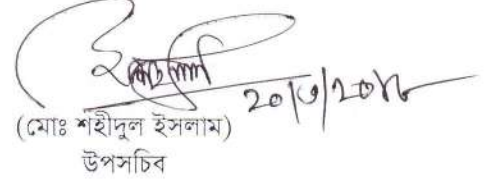 ২০/৩/২০১৮
(মোঃ শহীদুল ইসলাম)
উপসচিব